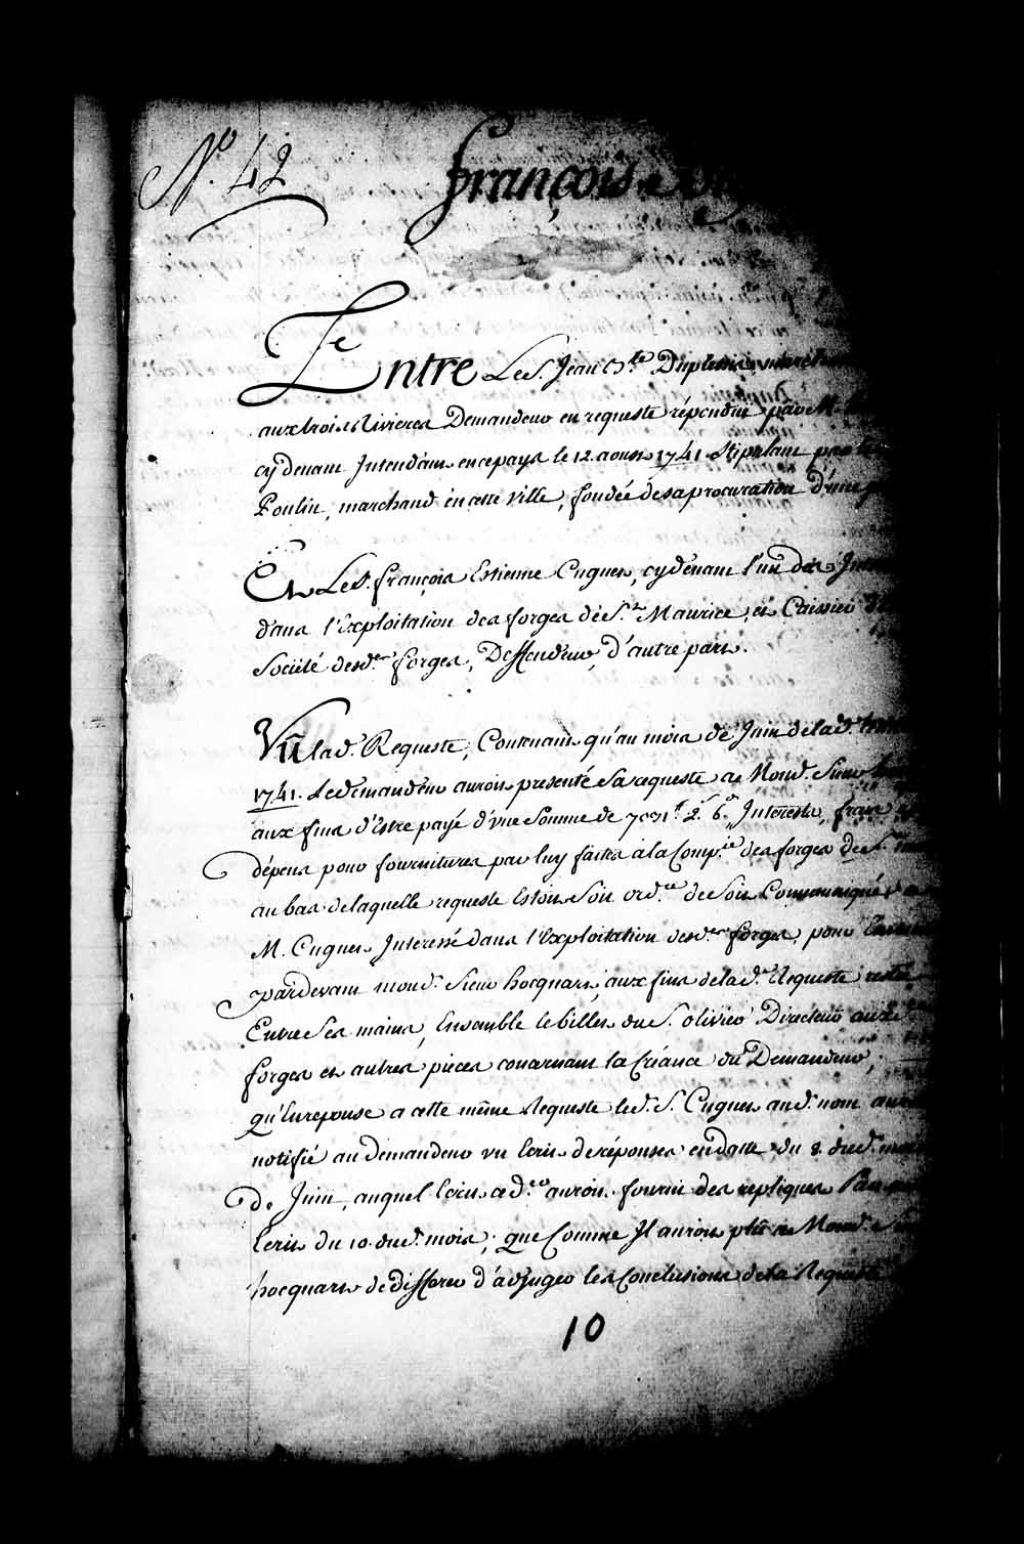 N.º 42
François
Entre Le S. Jean B.te Duplessis
aux trois Rivieres Demandeur en requeste répondüe par M.
cy devant Intendant en ce pays le 12 aoust 1741. Stipulant par le
Poulin, marchand en cette Ville, fondé de sa procuration d'une
Et Le S. François Estienne Cugnet, cy dévant l'un des
dans l'Exploitation des forges de S.t Maurice, et Caissier
Société desd.es forges, Deffendeur, d'autre part.
Vû lad. Requeste, Contenant qu'au mois de Juin de lad.
1741. Le demandeur auroit presenté Sa requeste a Mond. Sieur
aux fins d'Estre payé d'vne Somme de 7931.tt 2.s 6.d Interests, frais
dépens pour fournitures par luy faites à la Comp.ie des forges de S.t
au bas de laquelle requeste Estoit Son ord.ce de Soit Communiqué
M. Cugnet Interessé dans l'Exploitation desd.es forges, pour
pardevant mond. Sieur hocquart, aux fins de lad. Requeste
Entre Ses mains, Ensemble le billet du S. olivier Directeur
forges et autres pieces concernant la Créance du Demandeur,
qu'En reponse a cette même Requeste led. S. Cugnet aud. nom
notifié au demandeur vn Ecrit de réponses en datte du 8. dud.
de Juin, auquel Ecrit auroit fourni des repliques Par
Ecrit du 10. dud. mois, que Comme Il auroit plû a Mond.
hocquart de differer d'adjuger les Conclusions de la Requeste
10